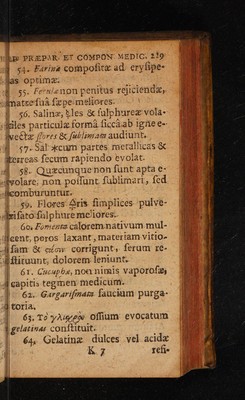 PRÆPAR. ET COMPON MEDIC. 229
54. Farinæ compositæ ad erysipe-
as optimæ.
55. non penitus rejiciendæ,
natæ suâ sæpe meliores.
56. Salinæ, & sulphureæ vola-
iles particulæ formâ siccâ ab igne e-
vectæ flores & sublimata audiunt.
57. Sal ✶cum partes metallicas &
terreas secum rapiendo evolat.
58. Quæcunque non sunt apta e-
volare, non possunt sublimari, sed
comburuntur.
59. Flores simplices pulve-
risato sulphure meliores.
60. Fomenta calorem nativum mul-
cent, poros laxant, materiam vitio-
sam & corrigunt, ferum re-
stituunt, dolorem leniunt.
61. Cucuphæ, non nimis vaporosæ,
capitis tegmen medicum.
62. Gargarismata faucium purga-
toria.
63. Τὸ γλισχρὸν ossium evocatum
gelatinas constituit.
64. Gelatinæ dulces vel acidæ
K 7 refi-